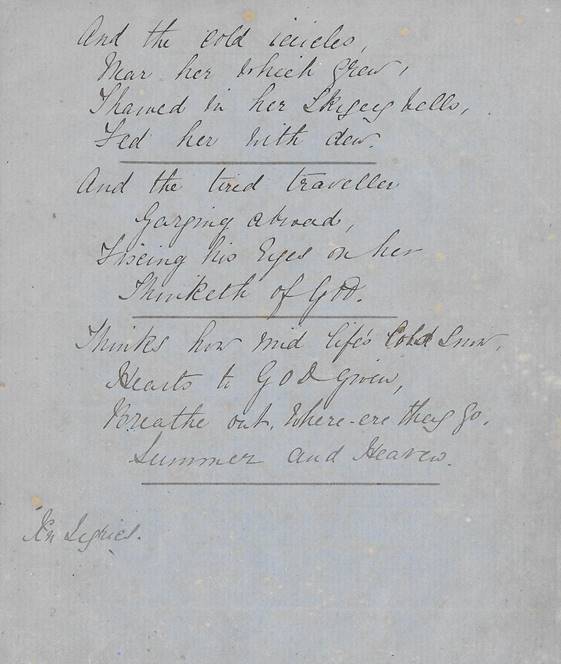 And the cold icicles,
Near her which grew,
Thawed in her skyey bells,
Fed her with dew.
And the tired traveller
Gazing abroad,
Fixing his Eyes on her
Thinketh of GOD.
Thinks how mid life's Cold Snow,
Hearts to GOD given,
Breathe out, Where-ere they go,
Summer and Heaven.